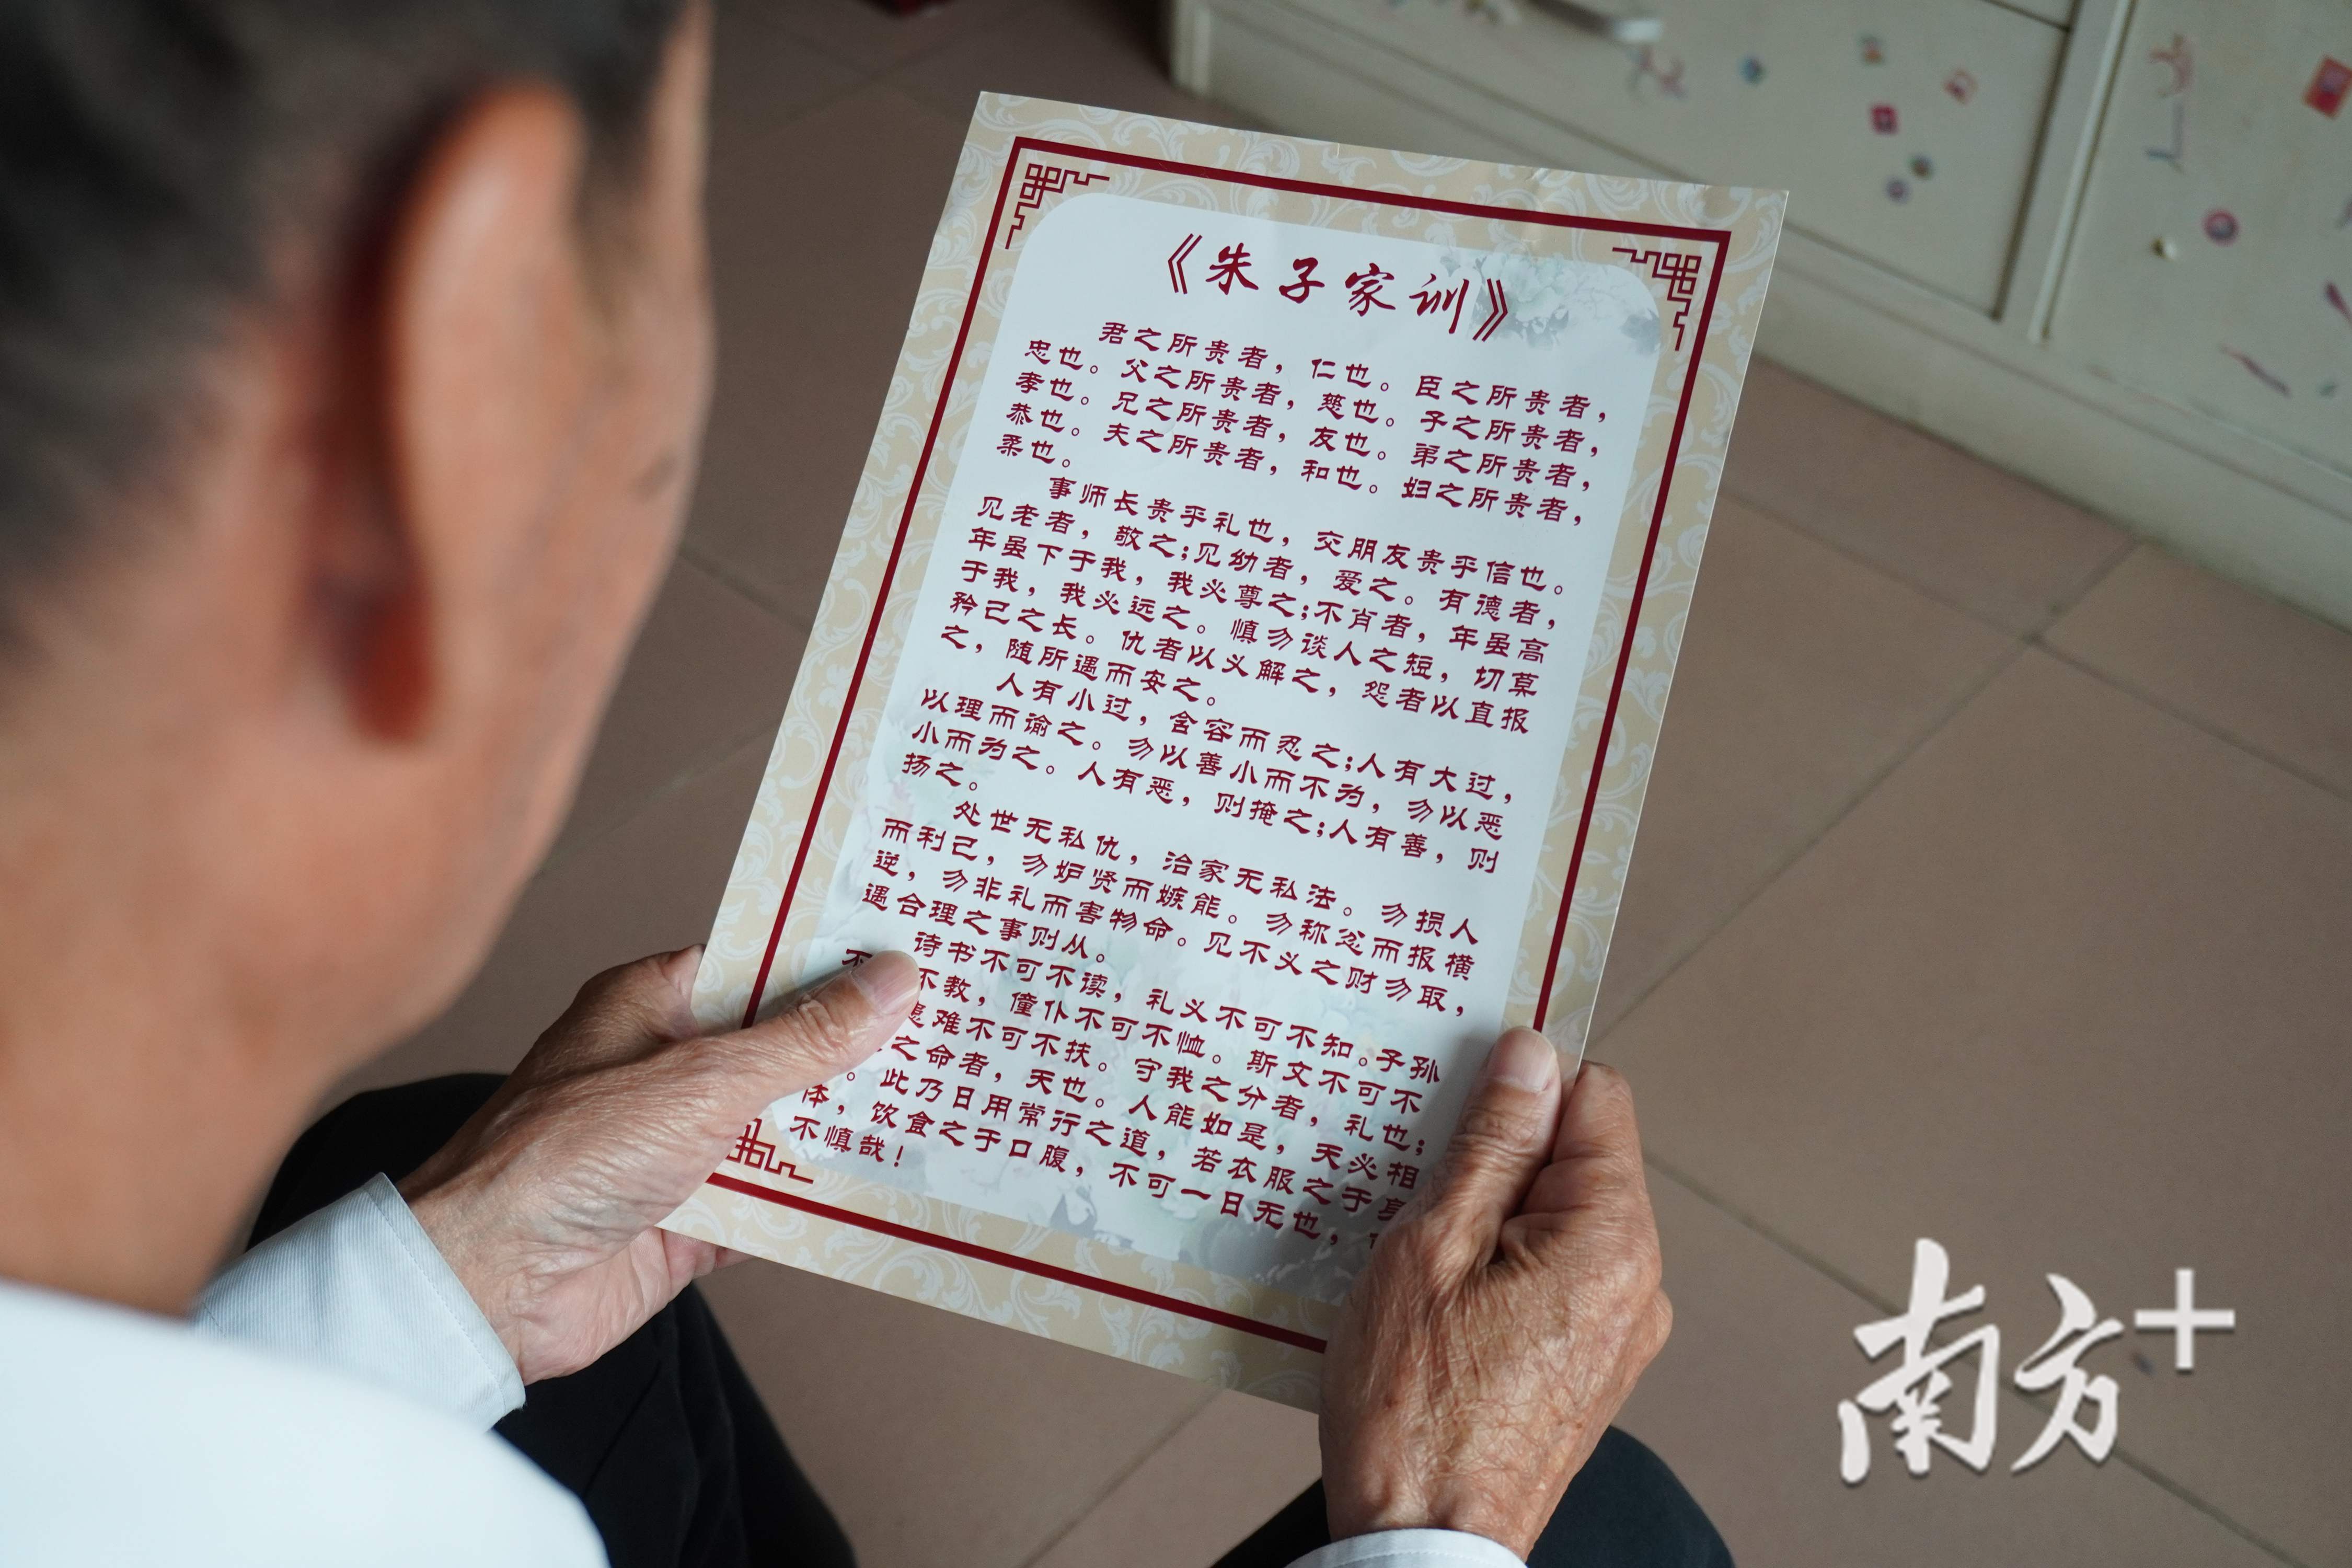 《朱子家训》
君之所贵者，仁也。臣之所贵者，
忠也。父之所贵者，慈也。子之所贵者，
孝也。兄之所贵者，友也。弟之所贵者，
恭也。夫之所贵者，和也。妇之所贵者，
柔也。
事师长贵乎礼也，交朋友贵乎信也。
见老者，敬之；见幼者，爱之。有德者，
年虽下于我，我必尊之；不肖者，年虽高
于我，我必远之。慎勿谈人之短，切莫
矜己之长。仇者以义解之，怨者以直报
之，随所遇而安之。
人有小过，含容而忍之；人有大过，
以理而谕之。勿以善小而不为，勿以恶
小而为之。人有恶，则掩之；人有善，则
扬之。
处世无私仇，治家无私法。勿损人
而利己，勿妒贤而嫉能。勿称忿而报横
逆，勿非礼而害物命。见不义之财勿取，
遇合理之事则从。
诗书不可不读，礼义不可不知。子孙
不教，僮仆不可不恤。斯文不可不
患难不可不扶。守我之分者，礼也；
之命者，天也。人能如是，天必相
。此乃日用常行之道，若衣服之于身
体，饮食之于口腹，不可一日无也，
不慎哉！
南方+